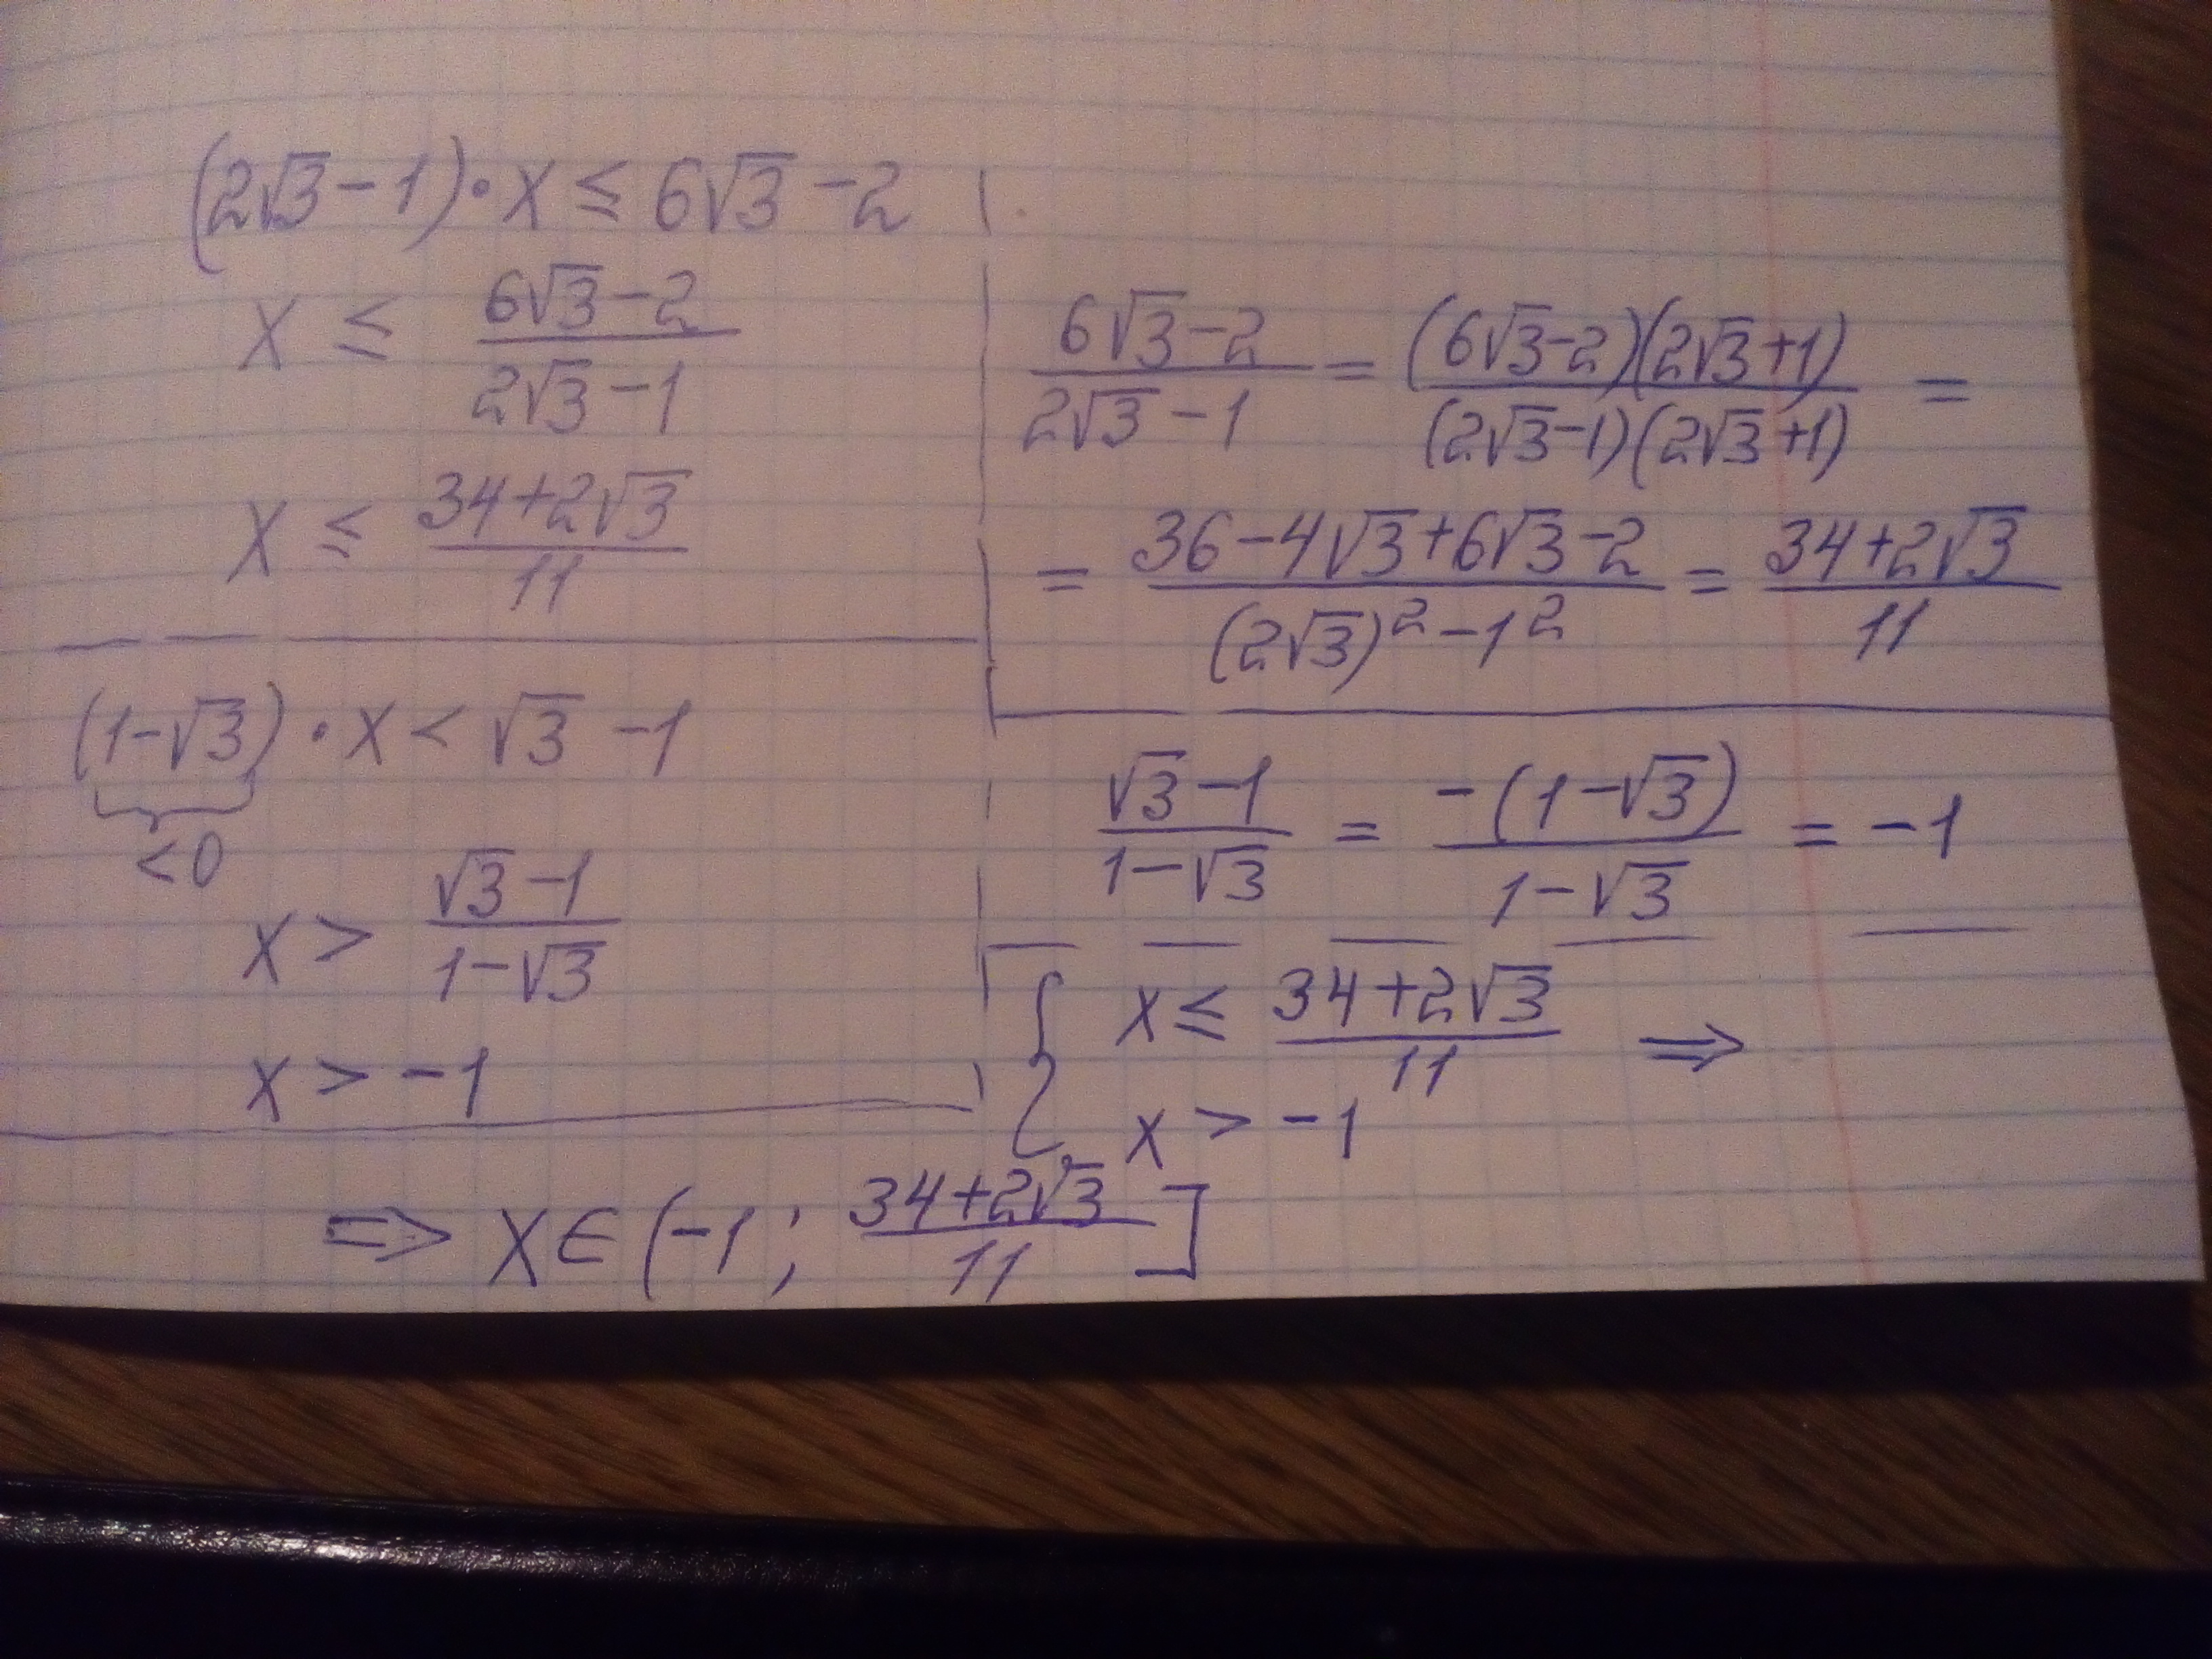 (2√3-1)·x ≤ 6√3-2
x ≤ (6√3-2)/(2√3-1)
x ≤ (34+2√3)/11
(6√3-2)/(2√3-1) = ((6√3-2)(2√3+1))/((2√3-1)(2√3+1)) =
= (36-4√3+6√3-2)/((2√3)²-1²) = (34+2√3)/11
(1-√3)·x < √3-1
<0
x > (√3-1)/(1-√3)
x > -1
(√3-1)/(1-√3) = (-(1-√3))/(1-√3) = -1
{ x ≤ (34+2√3)/11 ⇒
x > -1
⇒ x ∈ (-1; (34+2√3)/11]